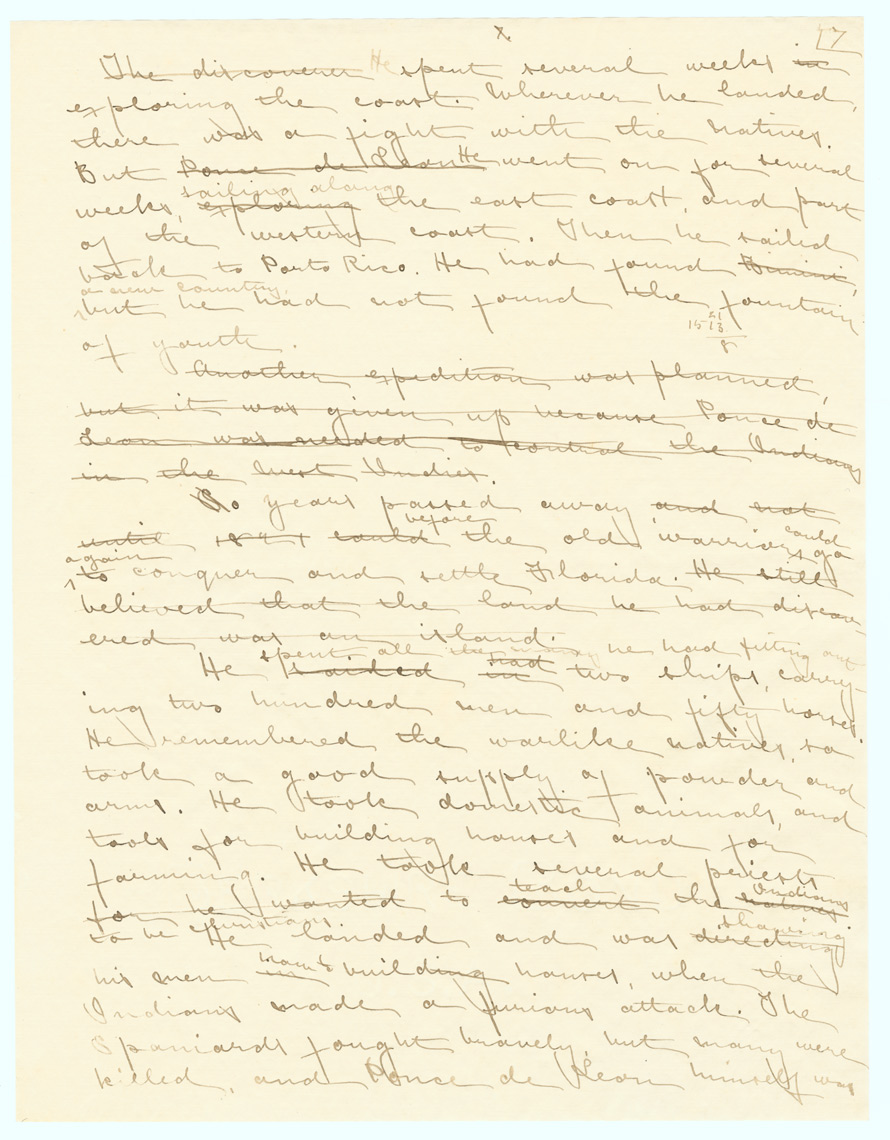 x 17
The discoverer He spent several weeks in
exploring the coast. Wherever he landed,
there was a fight with the natives.
But Ponce de Leon He went on for several
sailing along
weeks, exploring the east coast, and part
of the western coast. Then he sailed
back to Porto Rico. He had found Bimini,
a new country,
but he had not found the fountain
of youth.
21
1513
8
Another expedition was planned,
but it was given up because Ponce de
Leon was needed to control the Indians
in the West Indies.
So years passed away and not
before could
until 1521 could the old warrior go
again
to conquer and settle Florida. He still
believed that the land he had discov-
ered was an island.
spent all he had fitting out
He sailed in two ships, carry-
ing two hundred men and fifty horses.
He remembered the warlike natives, so
took a good supply of powder and
arms. He took domestic animals, and
tools for building houses and for
farming. He took several priests
teach Indians
for he wanted to convert the natives
to be Christians showing
He landed and was directing
his men how to building houses, when the
Indians made a furious attack. The
Spaniards fought bravely, but many were
killed, and Ponce de Leon himself was